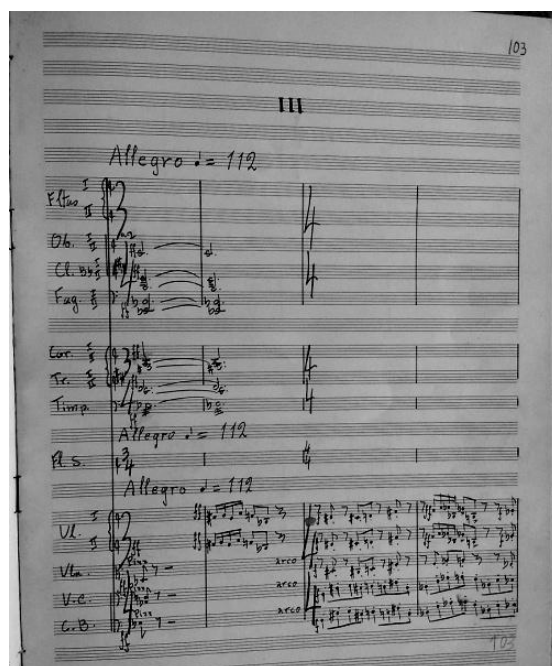 103
III
Allegro ♩= 112
Fltas I II
Ob. I II
Cl. Bb I II
Fag. I II
Cor. I II
Tr. I II
Timp.
Allegro ♩= 112
Fl. S.
Allegro ♩= 112
Vl. I II
Vla.
arco
V.C.
Pizz
arco
C.B.
Pizz
arco
103